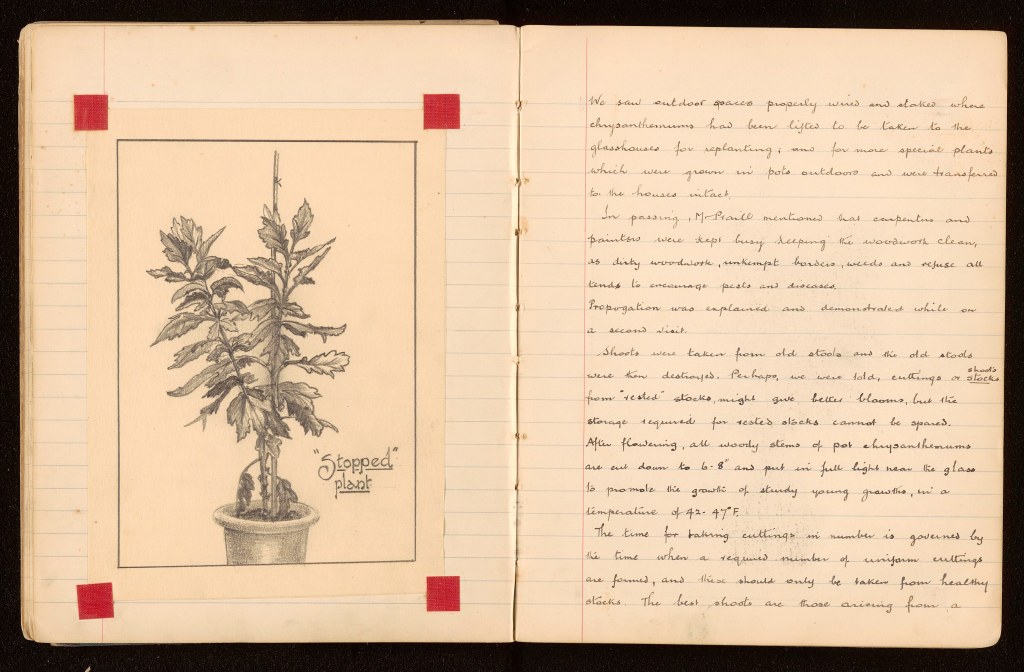 "Stopped"
plant
We saw outdoor spaces properly wired and staked where
chrysanthemums had been lifted to be taken to the
glasshouses for replanting, and for more special plants
which were grown in pots outdoors and were transferred
to the houses intact.
In passing, Mr mentioned that carpenters and
painters were kept busy keeping the woodwork clean,
as dirty woodwork, unkempt borders, weeds and refuse all
tends to encourage pests and diseases.
Propogation was explained and demonstrated while on
a second visit.
Shoots were taken from old stools and the old stools
were then destroyed. Perhaps, we were told, cuttings or stocks
shoots
from "rested" stocks, might give better blooms, but the
storage required for rested stocks cannot be spared.
After flowering, all woody stems of pot chrysanthemums
are cut down to 6-8" and put in full light near the glass
to promote the growth of sturdy young growths, in a
temperature of 42-47°F.
The time for taking cuttings in number is governed by
the time when a required number of uniform cuttings
are formed, and these should only be taken from healthy
stocks. The best shoots are those arising from a